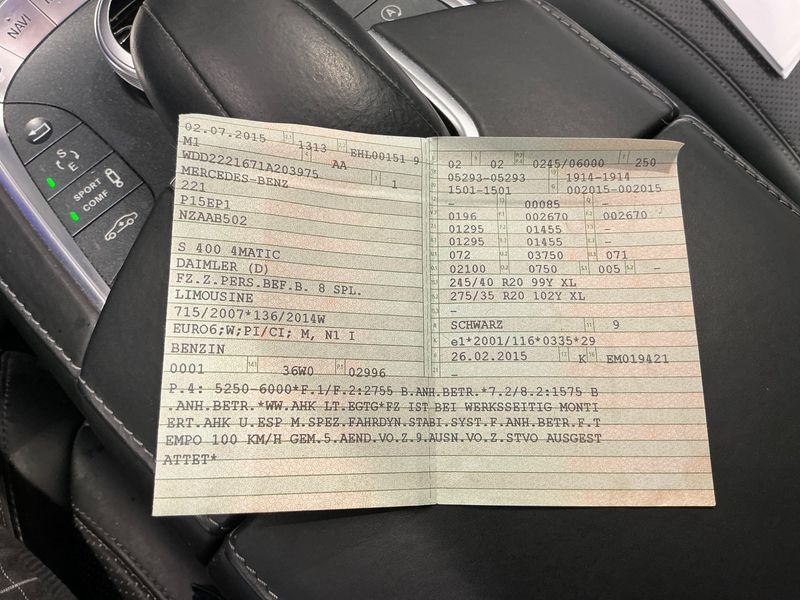 NAVI
S
E
SPORT
COMF
A
02.07.2015 2.1 1313 2.2 EHL00151 9
M1 AA
WDD2221671A203975 3 1
MERCEDES-BENZ
221
P15EP1
NZAAB502
S 400 4MATIC
DAIMLER (D)
FZ.Z.PERS.BEF.B. 8 SPL.
LIMOUSINE
715/2007*136/2014W
EURO6;W;PI/CI; M, N1 I
BENZIN
0001 36W0 P.1 02996
02 02 0245/06000 T 250
05293-05293 1914-1914
1501-1501 G 002015-002015
- 00085 Q -
0196 F.1 002670 F.2 002670
01295 7.2 01455 7.3 -
01295 8.2 01455 8.3 -
072 U.2 03750 U.3 071
02100 O.2 0750 S.1 005 S.2 -
245/40 R20 99Y XL
275/35 R20 102Y XL
-
SCHWARZ 11 9
e1*2001/116*0335*29
26.02.2015 17 K 16 EM019421
-
P.4: 5250-6000*F.1/F.2:2755 B.ANH.BETR.*7.2/8.2:1575 B
.ANH.BETR.*WW.AHK LT.EGTG*FZ IST BEI WERKSSEITIG MONTI
ERT.AHK U.ESP M.SPEZ.FAHRDYN.STABI.SYST.F.ANH.BETR.F.T
EMPO 100 KM/H GEM.5.AEND.VO.Z.9.AUSN.VO.Z.STVO AUSGEST
ATTET*